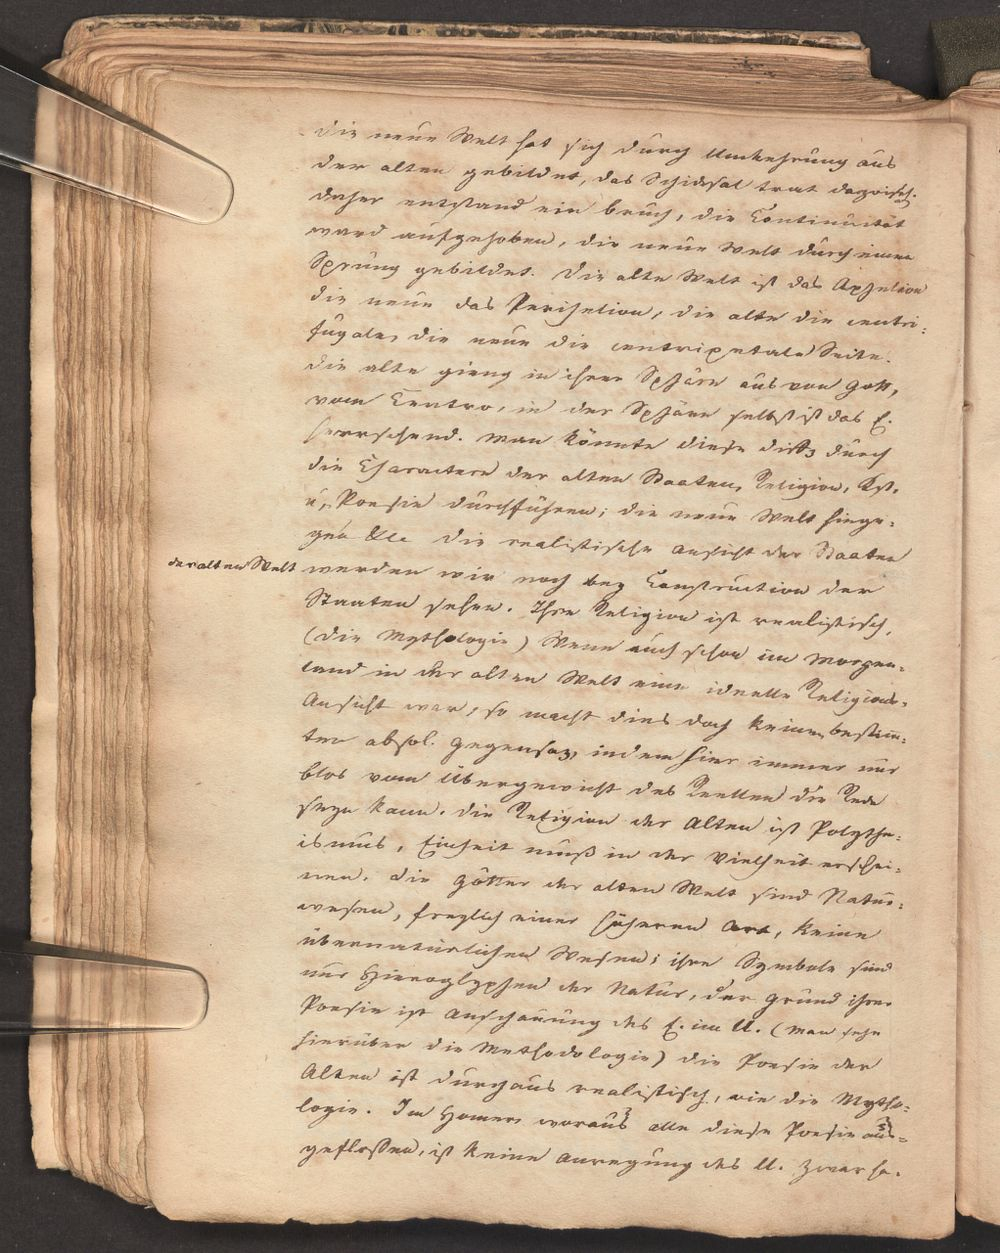 Die neue Welt hat sich durch Umkehrung aus
der alten gebildet, das Schicksal trat dazwisch.
daher entstand ein bruch, die Continuität
ward aufgehoben, die neue Welt durch einen
Sprung gebildet. Die alte Welt ist das Aphelion
die neue das Perihelion, die alte die centri-
fugale, die neue die centripetale Seite.
Die alte gieng in ihrer Sphäre aus von Gott,
vom Centro, in der Sphäre selbst ist das E.
herrschend. Man könnte diese durch
die Charactere der alten Staaten, Religion, Kst.
u. Poesie durchführen; die neue Welt hinge-
gen &c Die realistische Ansicht der Staaten
der alten Welt werden wir noch bey Construction der
Staaten sehen. Ihre Religion ist realistisch,
(die Mythologie) Wenn auch schon im Morgen-
land in der alten Welt eine ideelle Religions-
Ansicht war, so macht dies doch keinen bestim-
ten absol. Gegensaz, indem hier immer nur
blos vom Übergewicht des Reellen die Rede
seyn kann. Die Religion der Alten ist Polythe-
ismus, Einheit muß in der Vielheit erschei-
nen. Die Götter der alten Welt sind Natur-
wesen, freylich einer höheren Art, keine
übernatürlichen Wesen; ihre Symbole sind
nur Hieroglyphen der Natur, der Grund ihrer
Poesie ist Anschauung des E. im U. (man sehe
hierüber die Methodologie) die Poesie der
Alten ist durchaus realistisch, wie die Mytho-
logie. Im Homer woraus alle diese Poesie aus-
geflossen, ist keine Anregung des U. Zwar ha-